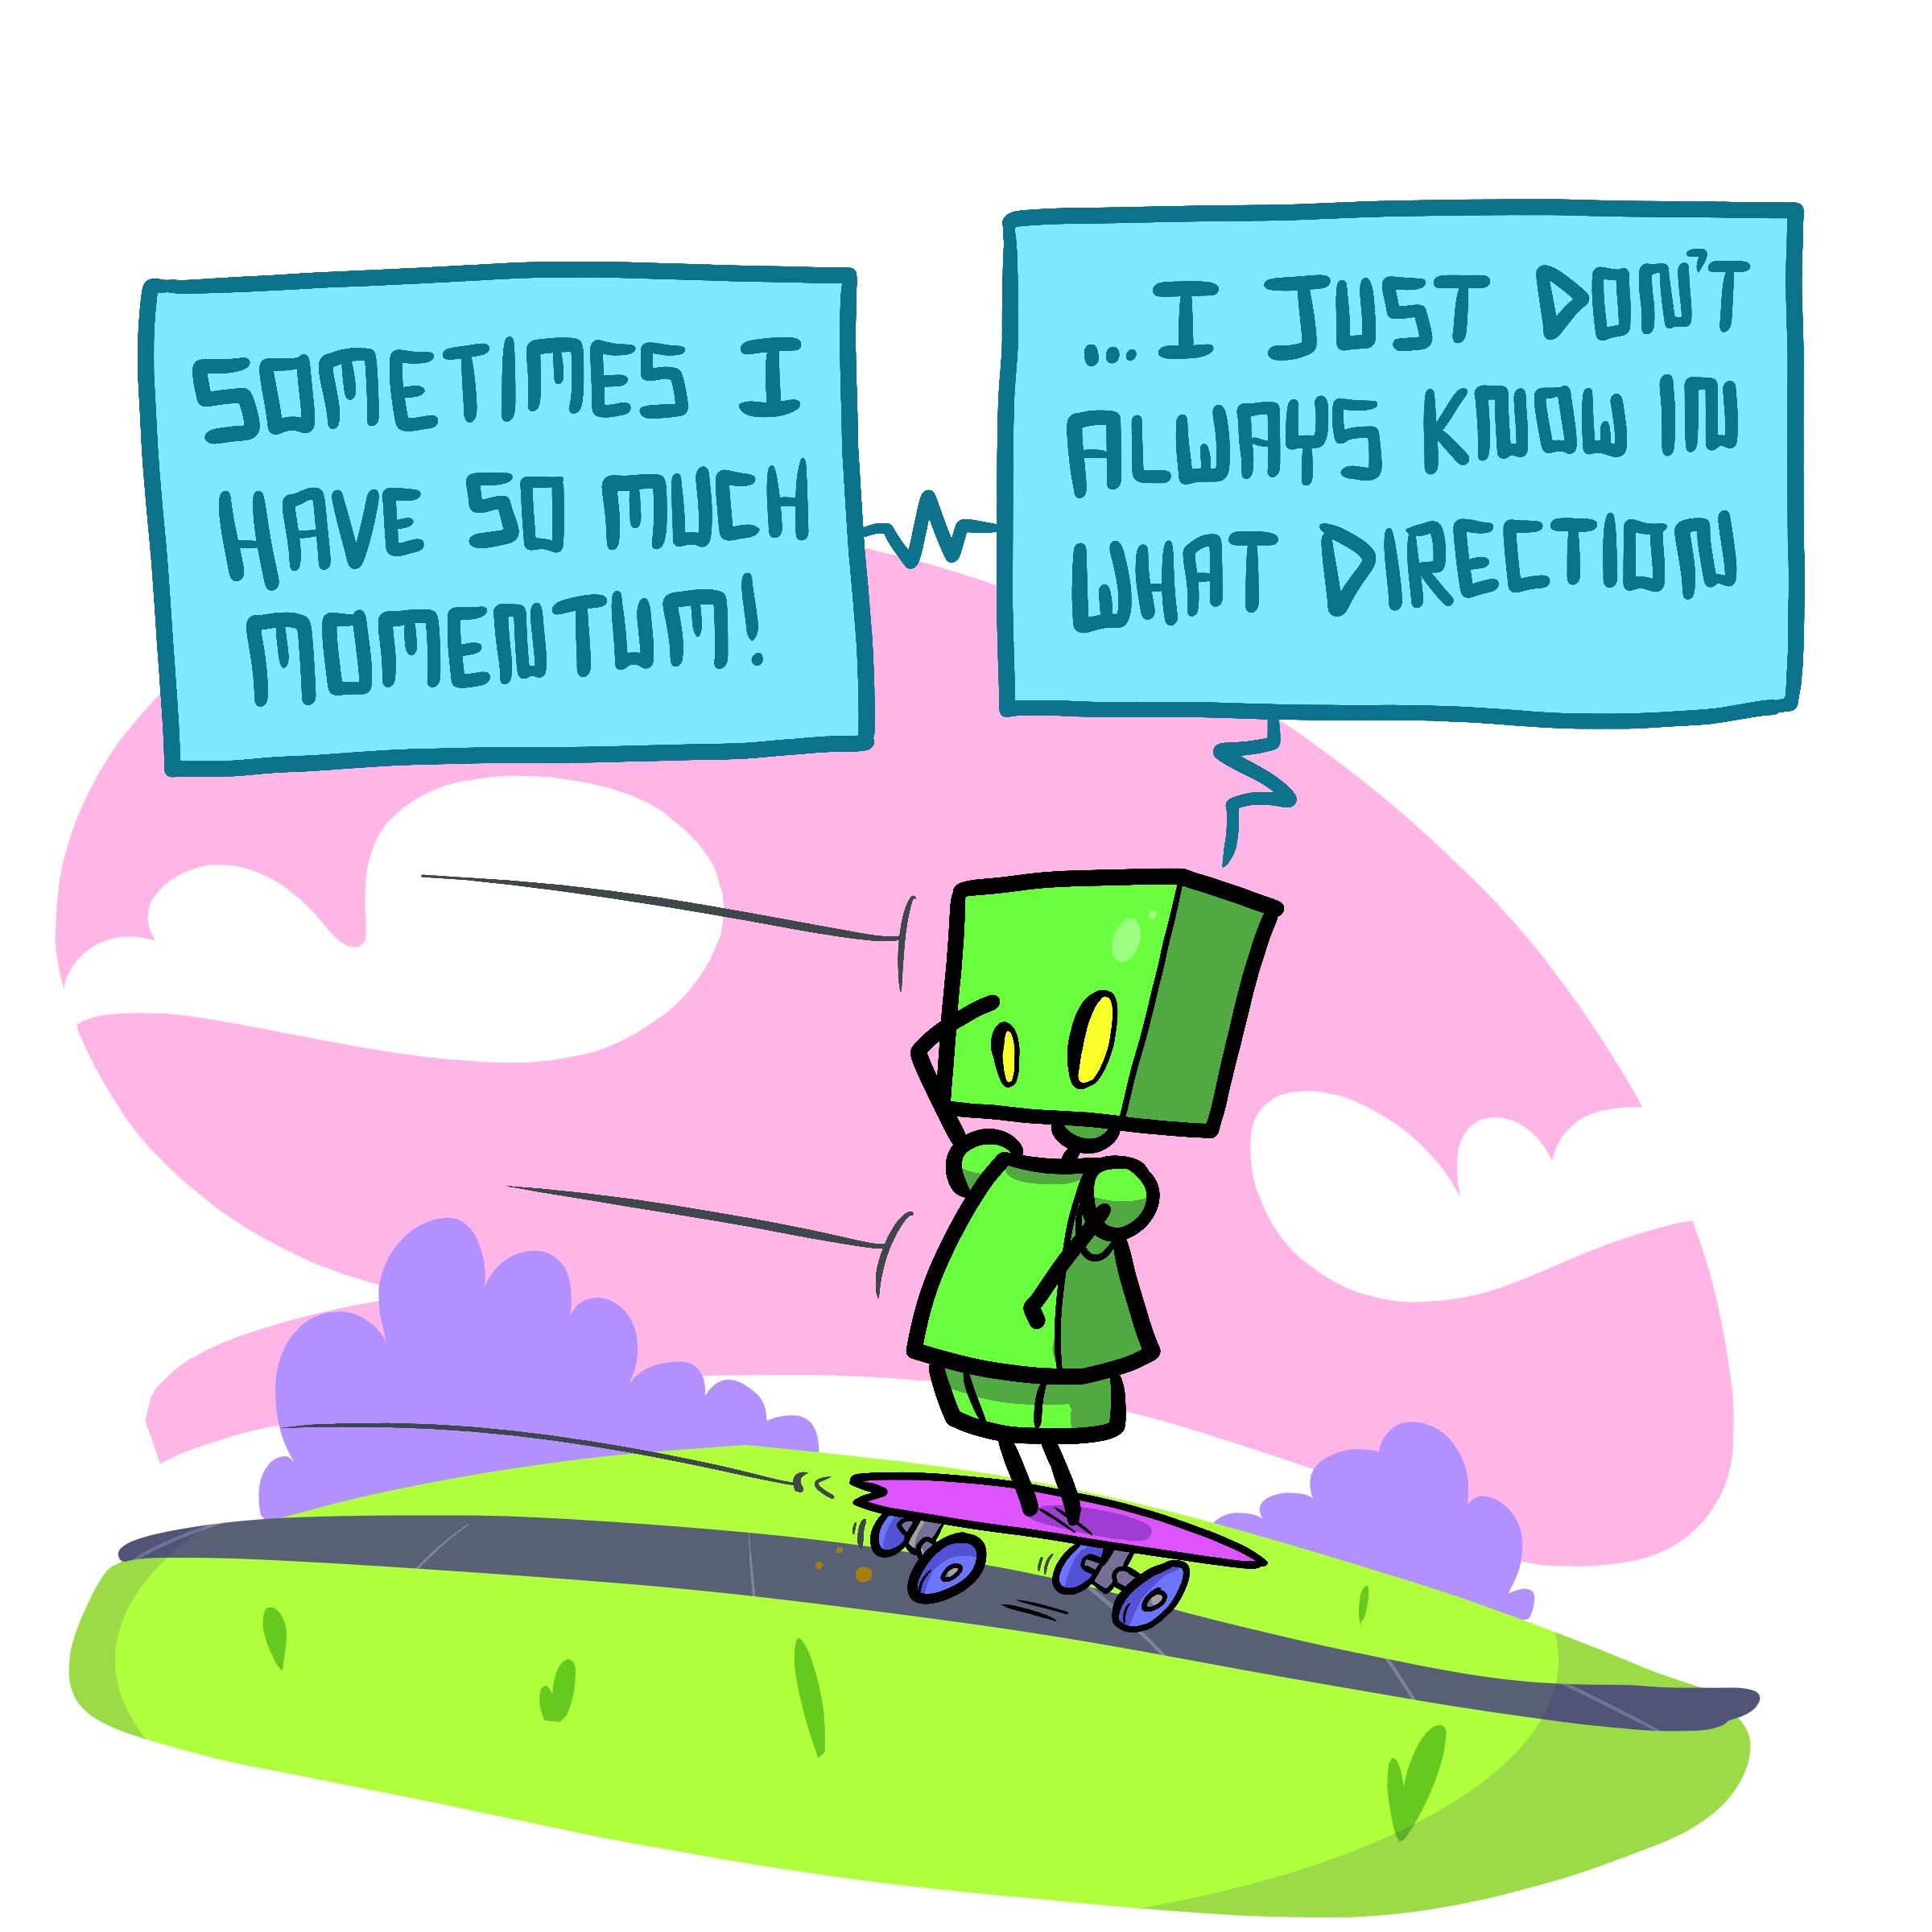 SOMETIMES I
HAVE SO MUCH
MOMENTUM!
...I JUST DON'T
ALWAYS KNOW IN
WHAT DIRECTION